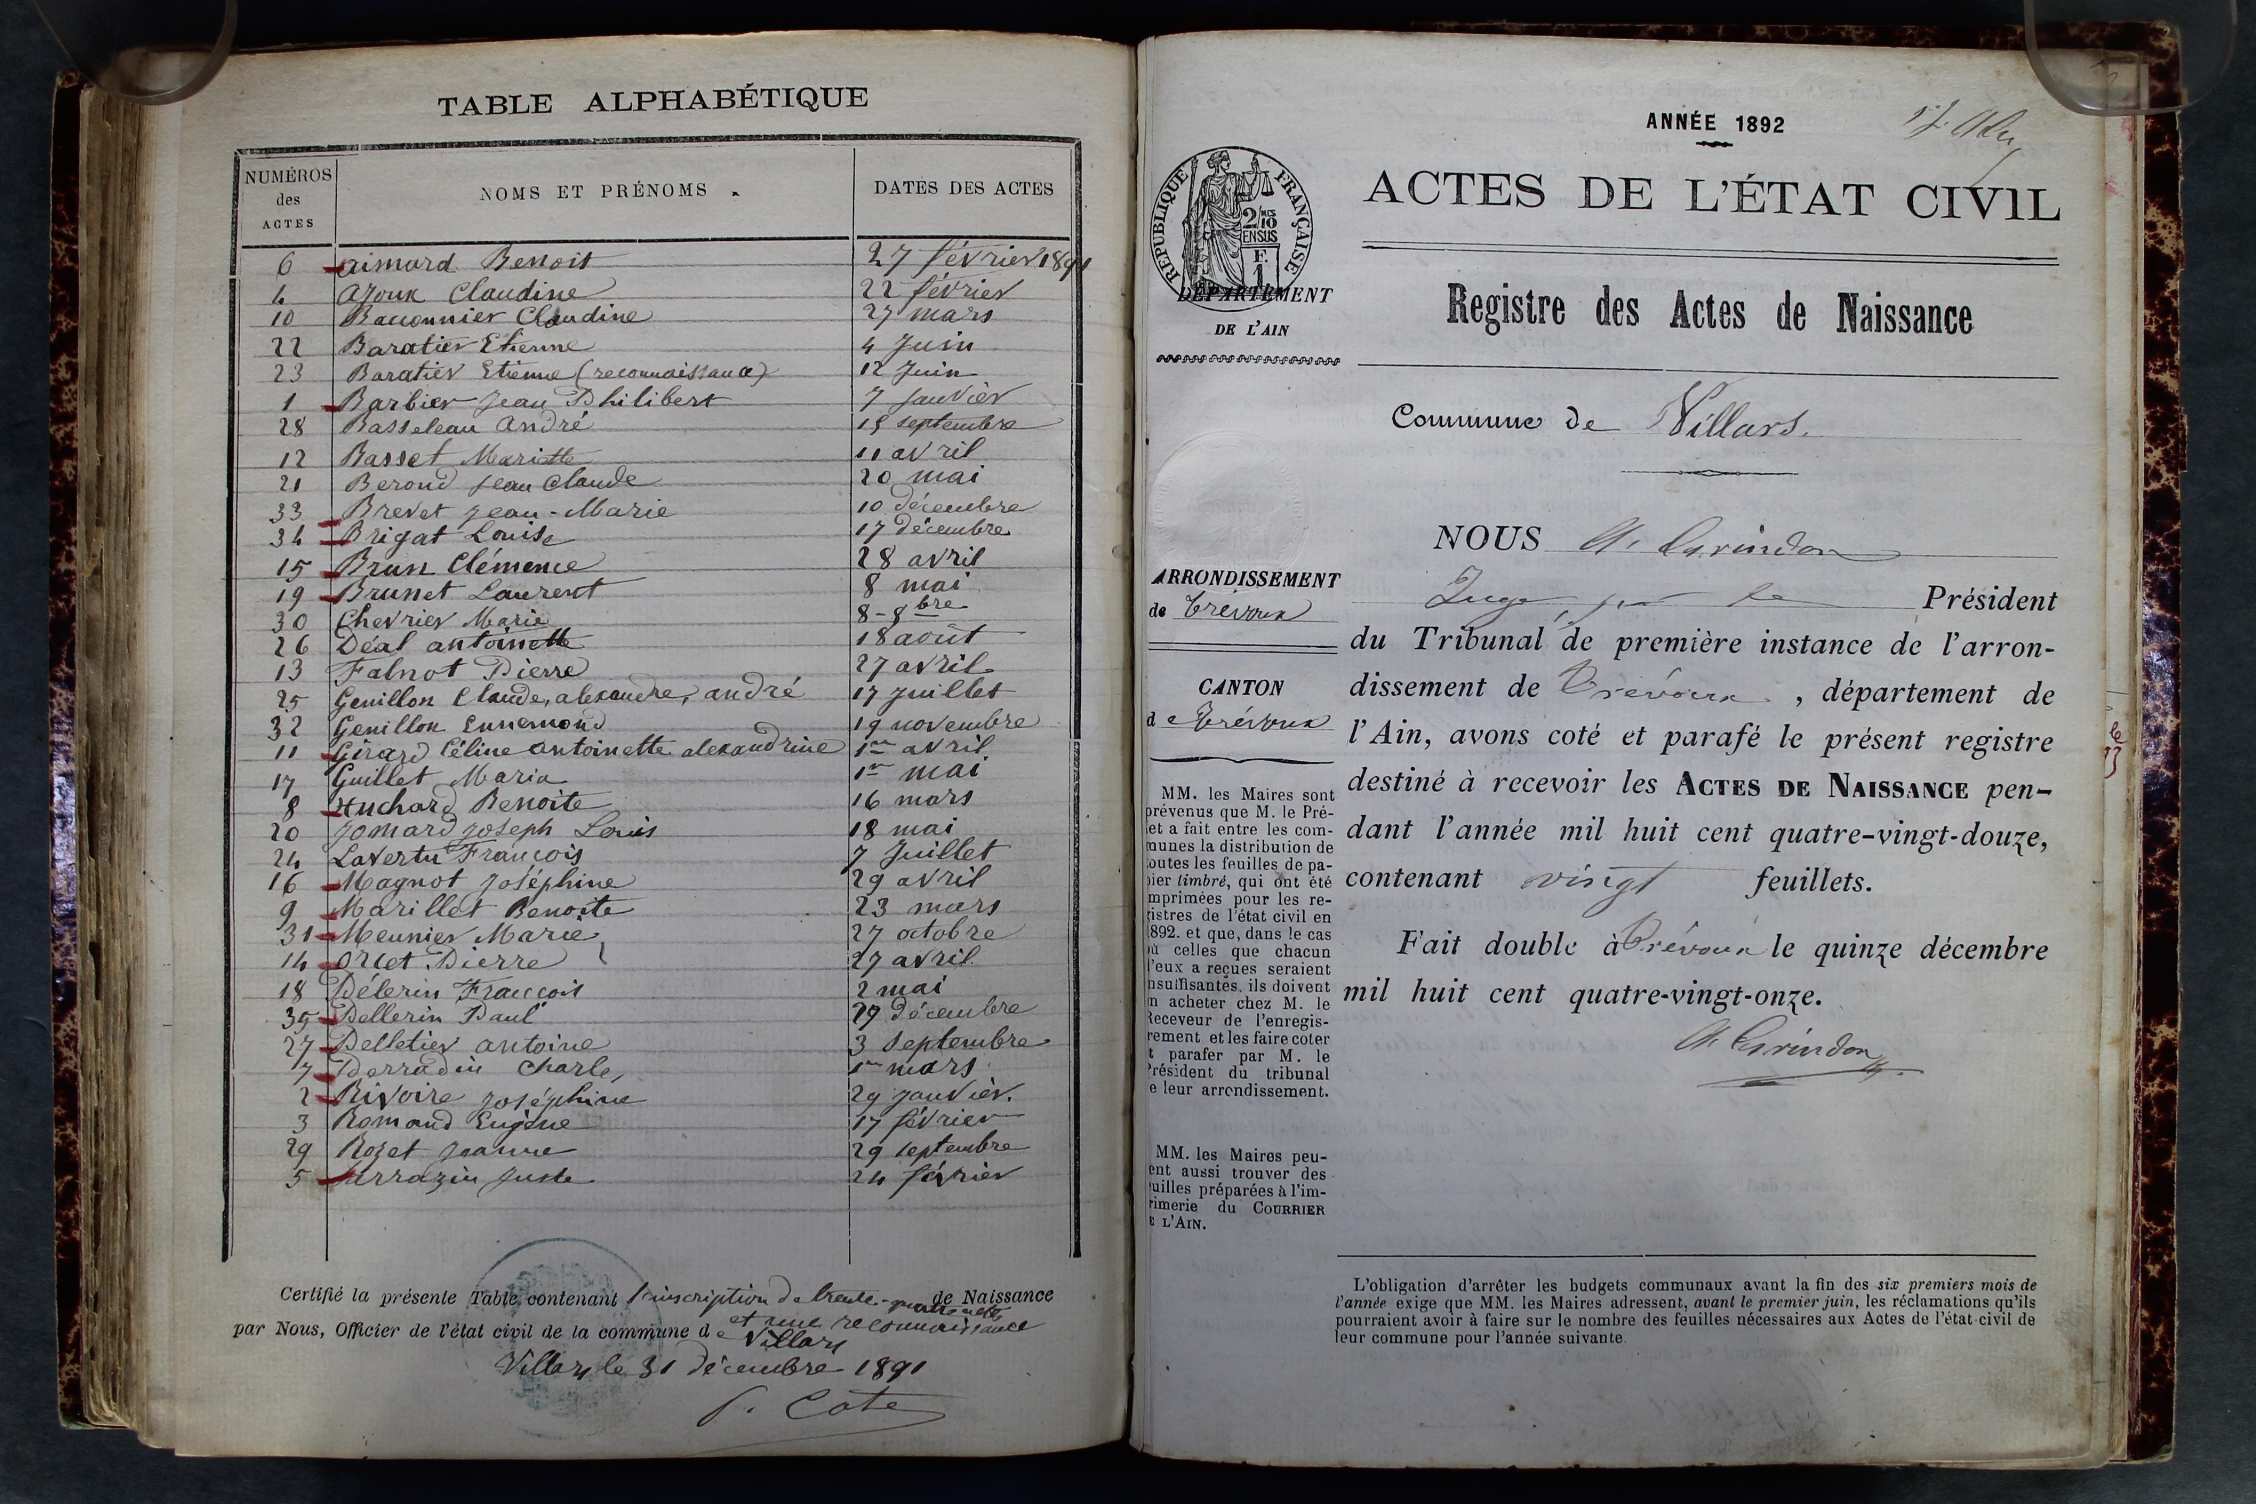 TABLE ALPHABÉTIQUE
NUMÉROS des ACTES NOMS ET PRÉNOMS DATES DES ACTES
6 aimard Benoit 27 février 1891
4 ajoux Claudine 22 février
10 Bauonnier Claudine 27 mars
22 Baratier Etienne 4 Juin
23 Baratier Etienne (reconnaissance) 12 Juin
1 Barbier Jean Philibert 7 Janvier
28 Basseleau André 15 septembre
12 Basset Mariette 11 avril
21 Berond Jean Claude 20 mai
33 Brevet Jean-Marie 10 décembre
34 Brigat Louise 17 décembre
15 Brun Clémence 28 avril
19 Brunet Laurent 8 mai
30 Chevrier Marie 8-8bre
26 Déal antoinette 18 août
13 Falnot Pierre 27 avril
25 Genillon Claude, alexandre, andré 17 Juillet
32 Genillon Ennemond 19 novembre
11 Girard Céline antoinette alexandrine 1er avril
17 Guillet Maria 1er mai
8 Huchard Benoite 16 mars
20 Jomard Joseph Louis 18 mai
24 Lavertu François 7 Juillet
16 Magnot Joséphine 29 avril
9 Marillet Benoite 23 mars
31 Meunier Marie 27 octobre
14 Orcet Pierre 27 avril
18 Pélerin François 2 mai
35 Pellerin Paul 29 décembre
27 Pelletier antoine 3 septembre
7 Perradin Charles 1er mars
2 Rivoire Joséphine 29 Janvier.
3 Romand Eugène 17 février
29 Rozet Jeanne 29 septembre
5 Sarrazin Juste 24 février
Certifié la présente Table contenant l'inscription de trente-quatre actes de Naissance
et une reconnaissance
par Nous, Officier de l'état civil de la commune de Villars
Villars le 31 décembre 1891
P. Cote
ANNÉE 1892
ACTES DE L'ÉTAT CIVIL
RÉPUBLIQUE FRANÇAISE
2 MES 10
EN SUS
F.
1
DÉPARTEMENT
DE L'AIN
Registre des Actes de Naissance
Commune de Villars.
ARRONDISSEMENT
de Trévoux
CANTON
de Trévoux
MM. les Maires sont
prévenus que M. le Pré-
et a fait entre les com-
munes la distribution de
outes les feuilles de pa-
pier timbré, qui ont été
mprimées pour les re-
gistres de l'état civil en
892. et que, dans le cas
où celles que chacun
d'eux a reçues seraient
nsuffisantes, ils doivent
n acheter chez M. le
Receveur de l'enregis-
rement et les faire coter
t parafer par M. le
Président du tribunal
e leur arrondissement.
MM. les Maires peu-
ent aussi trouver des
uilles préparées à l'im-
rimerie du COURRIER
E L'AIN.
NOUS A. Grindon
Juge, pour le Président
du Tribunal de première instance de l'arron-
dissement de Trévoux, département de
l'Ain, avons coté et parafé le présent registre
destiné à recevoir les ACTES DE NAISSANCE pen-
dant l'année mil huit cent quatre-vingt-douze,
contenant vingt feuillets.
Fait double à Trévoux le quinze décembre
mil huit cent quatre-vingt-onze.
A. Grindon
L'obligation d'arrêter les budgets communaux avant la fin des six premiers mois de
l'année exige que MM. les Maires adressent, avant le premier juin, les réclamations qu'ils
pourraient avoir à faire sur le nombre des feuilles nécessaires aux Actes de l'état civil de
leur commune pour l'année suivante.